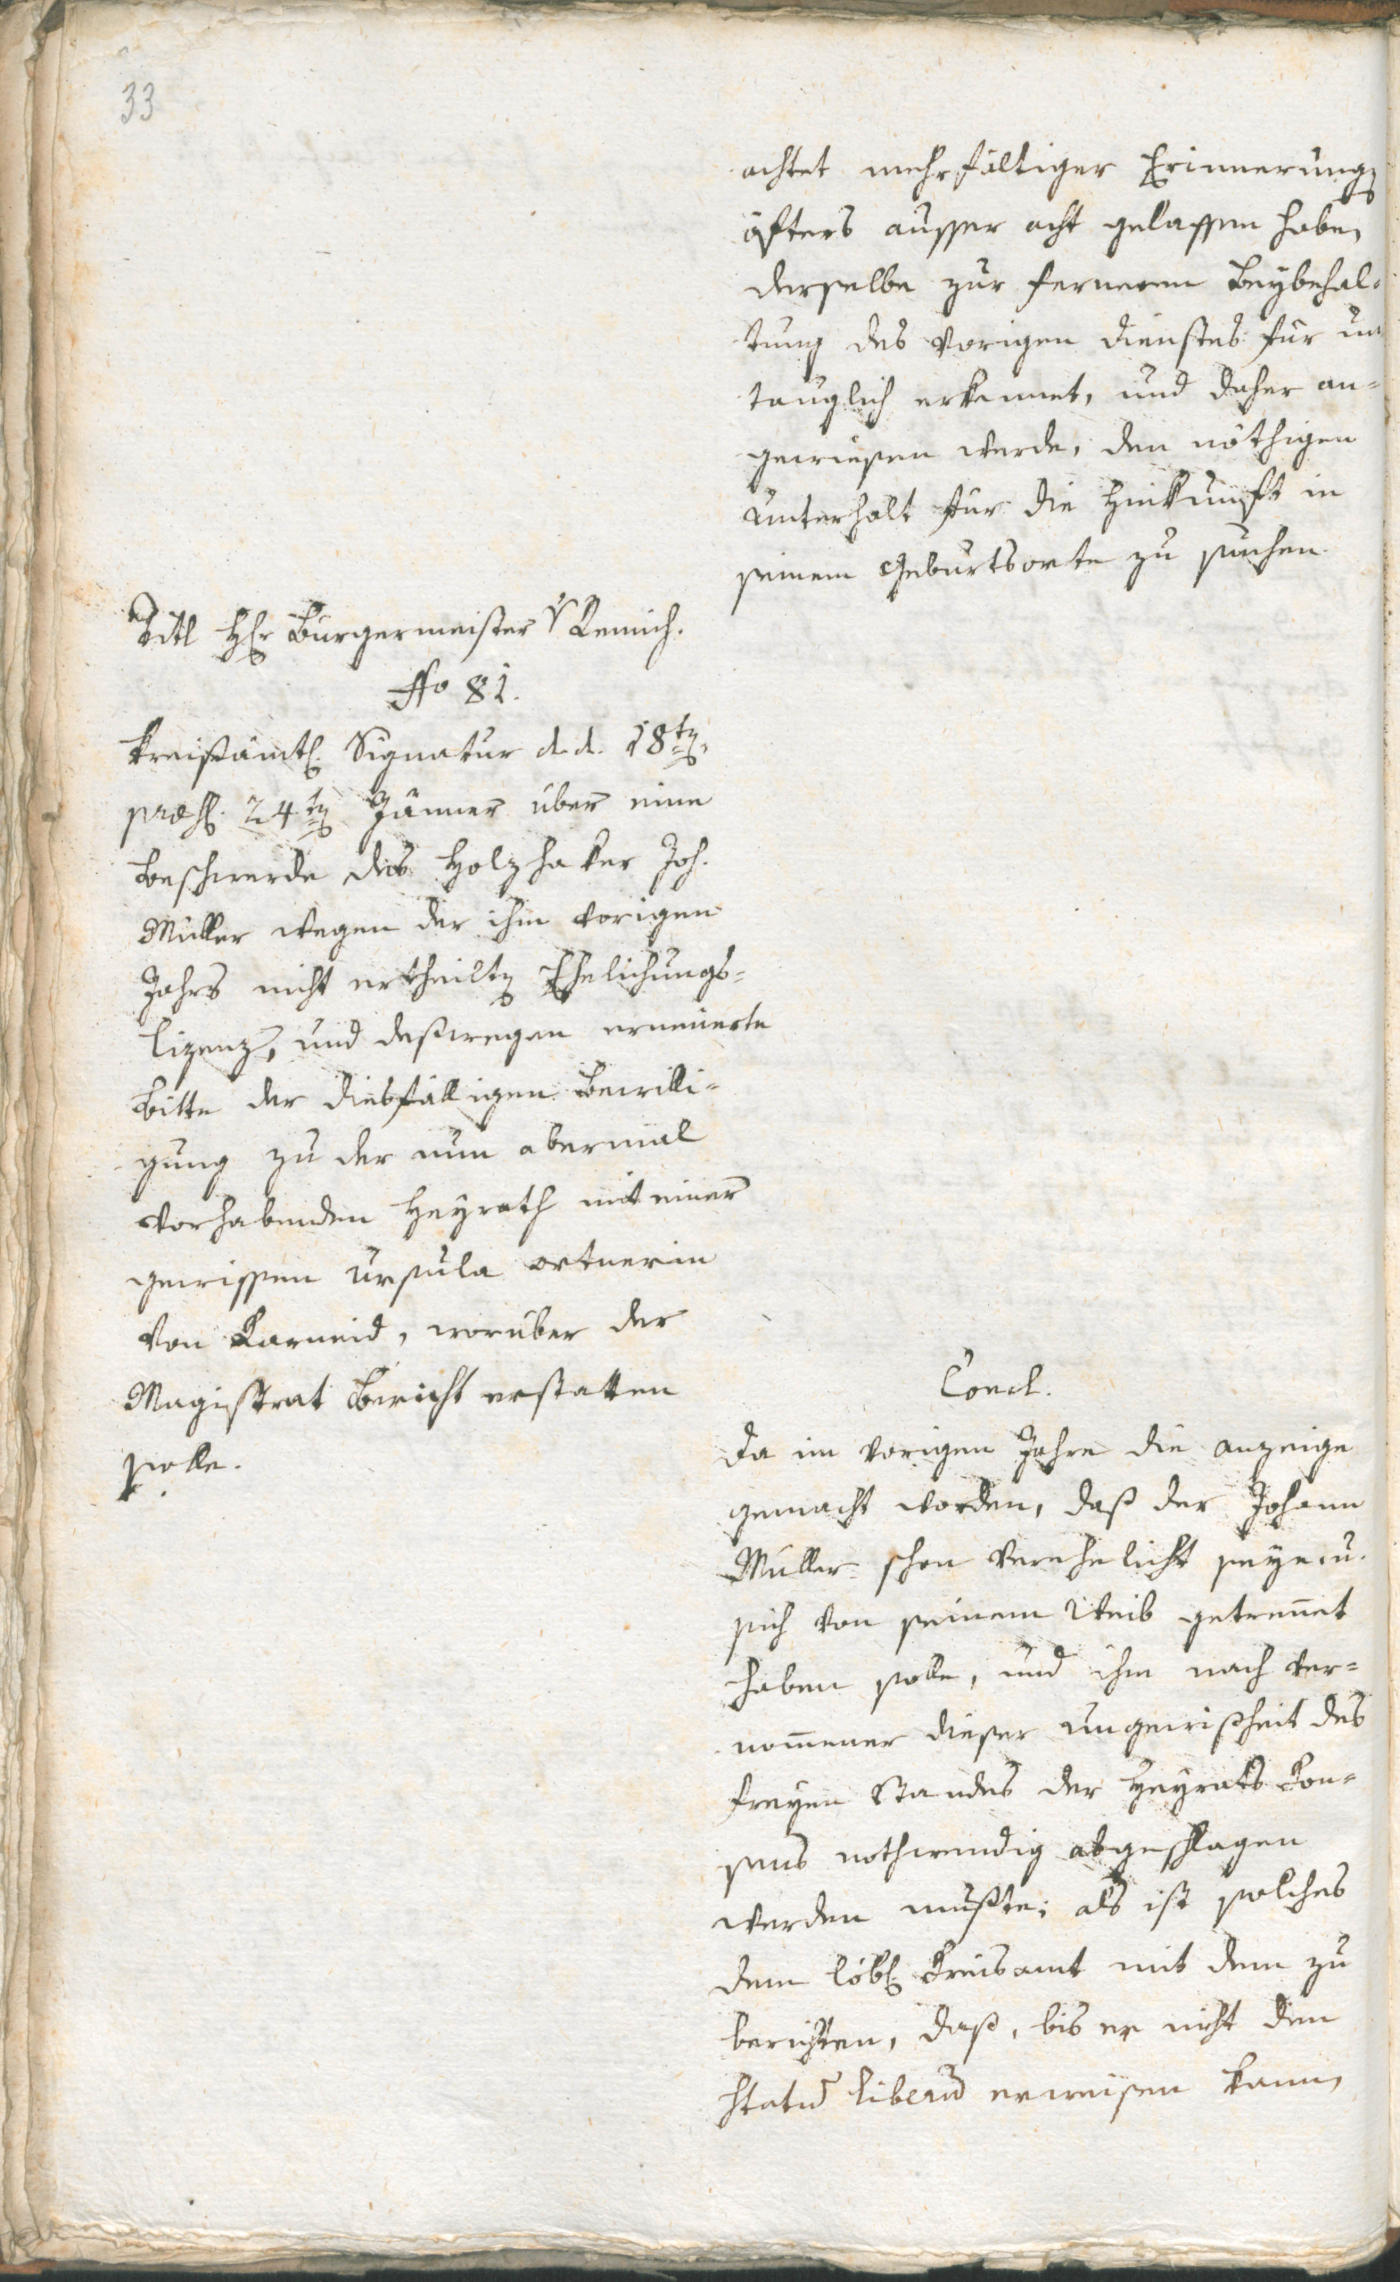 33
achtet mehrfältiger Erinnerung
öfters ausser acht gelassen habe,
derselbe zur ferneren Beybehal-
tung des vorigen dienstes für un
tauglich erkennet, und daher an-
gewiesen werde, den nöthigen
Unterhalt für die Hinkunft in
seinem Geburtsorte zu suchen.
Titl Hr Burgermeister v Remich.
No 81.
Kreißämtl. Signatur d. d. 18ten,
præs. 24ten Jänner über eine
Beschwerde des Holzhaker Joh.
Müller wegen der ihm vorigen
Jahrs nicht ertheiltn Ehelichungs-
Lizenz, und deßwegen erneuerte
Bitte der diesfälligen Bewilli-
gung zu der nun abermal
vorhabenden Heyrath mit einer
gewissen Ursula ortnerin
von Karneid, worüber der
Magistrat Bericht erstatten
solle.
Concl.
Da im vorigen Jahre die anzeige
gemacht worden, daß der Johann
Müller schon verehelicht seye, u.
sich von seinem Weib getrennet
haben solle, und ihm nach ver-
nommener dieser ungewißheit des
freyen Standes der Heyrats Con-
sens nothwendig abgeschlagen
werden mußte; als ist solches
dem löbl Kreisamt mit dem zu
berichten, daß, bis er nicht den
statum liberum erweisen kann,